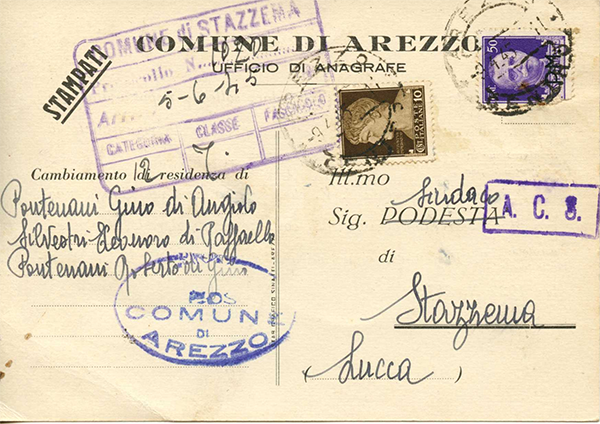 COMUNE di STAZZEMA
COMUNE DI AREZZO
UFFICIO DI ANAGRAFE
STAMPATI
5-6-45
CATEGORIA CLASSE FASCICOLO
2 7.
50
10
Cambiamento di residenza di
Pontenani Gino di Angiolo
Silvestri Eleonora di Raffaello
Pontenani Roberto di Gino
COMUNE
DI
AREZZO
Ill.mo
Sindaco
Sig. PODESTÀ
A. C. S.
di
Stazzema
(Lucca)